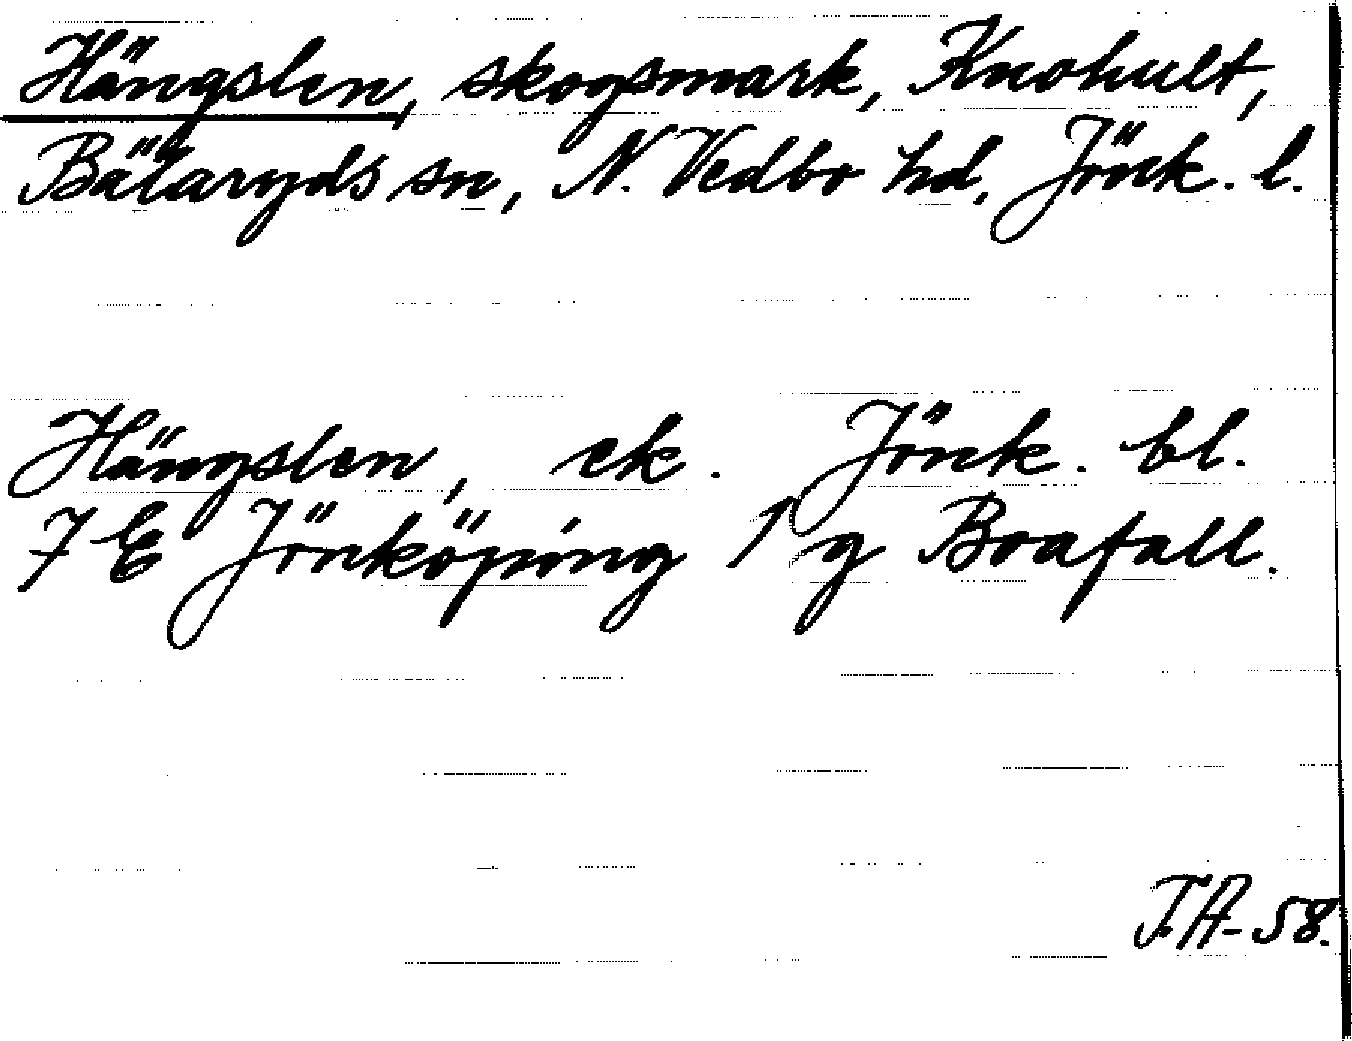 Hängslen, skogsmark, Knohult,
Bälaryds sn, N. Vedbo hd, Jönk. l.
Hängslen, ek. Jönk. bl.
7 E Jönköping 1 g Boafall.
T.A-58.